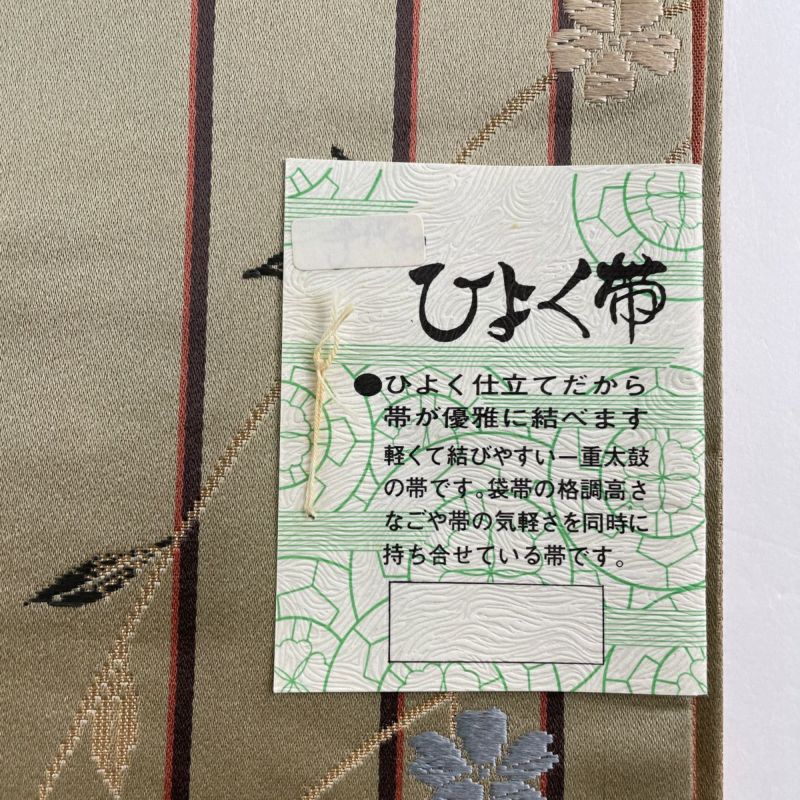 ひよく帯
●ひよく仕立てだから
帯が優雅に結べます
軽くて結びやすい一重太鼓
の帯です。袋帯の格調高さ
なごや帯の気軽さを同時に
持ち合せている帯です。